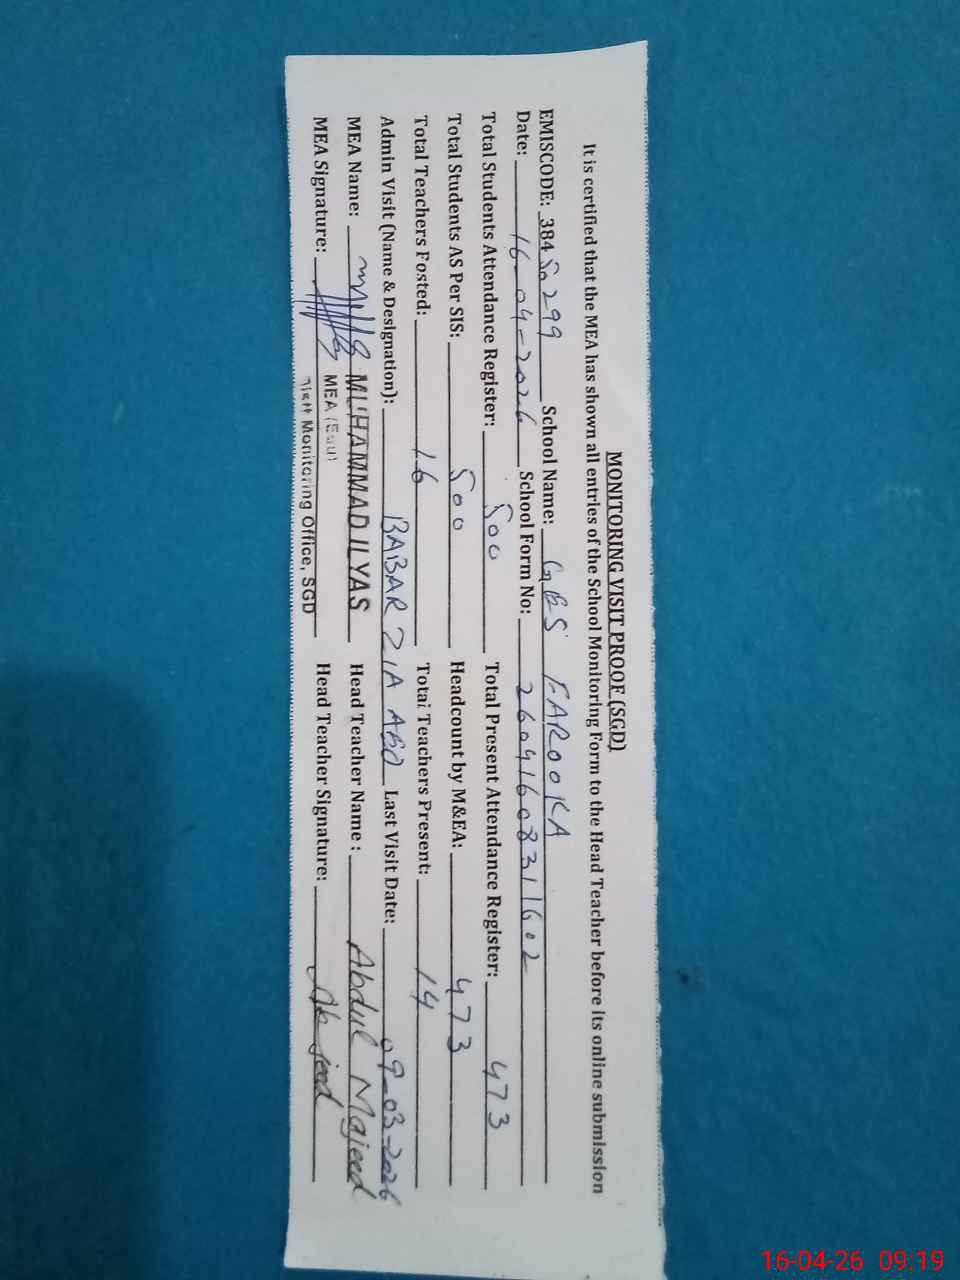 MONITORING VISIT PROOF (SGD)
It is certified that the MEA has shown all entries of the School Monitoring Form to the Head Teacher before its online submission
EMISCODE: 384 50299 School Name: GES FAROOKA
Date: 16-04-2026 School Form No: 26041608311602
Total Students Attendance Register: 500 Total Present Attendance Register: 473
Total Students AS Per SIS: 500 Headcount by M&EA: 473
Total Teachers Posted: 16 Total Teachers Present: 14
Admin Visit (Name & Designation): BABAR ZIA AEO Last Visit Date: 09-03-2026
MEA Name: MUHAMMAD ILYAS Head Teacher Name: Abdul Majeed
MEA (Edu)
MEA Signature: Monitoring Office, SGD Head Teacher Signature:
16-04-26 09:19